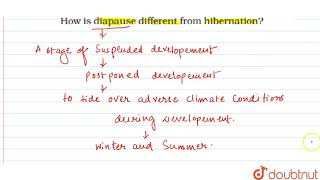 How is diapause different from hibernation?
↓
A stage of Suspended developement
↓
Postponed developement
↓
to tide over adverse climate Conditions
during developement.
↓
winter and Summer.
doubtnut